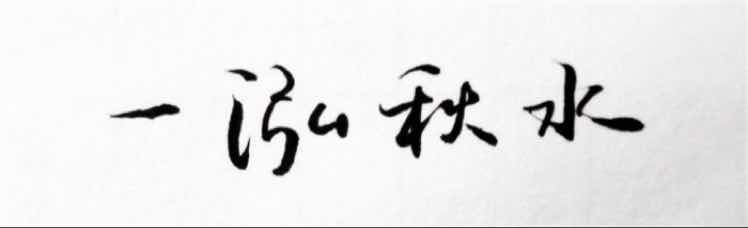 一泓秋水